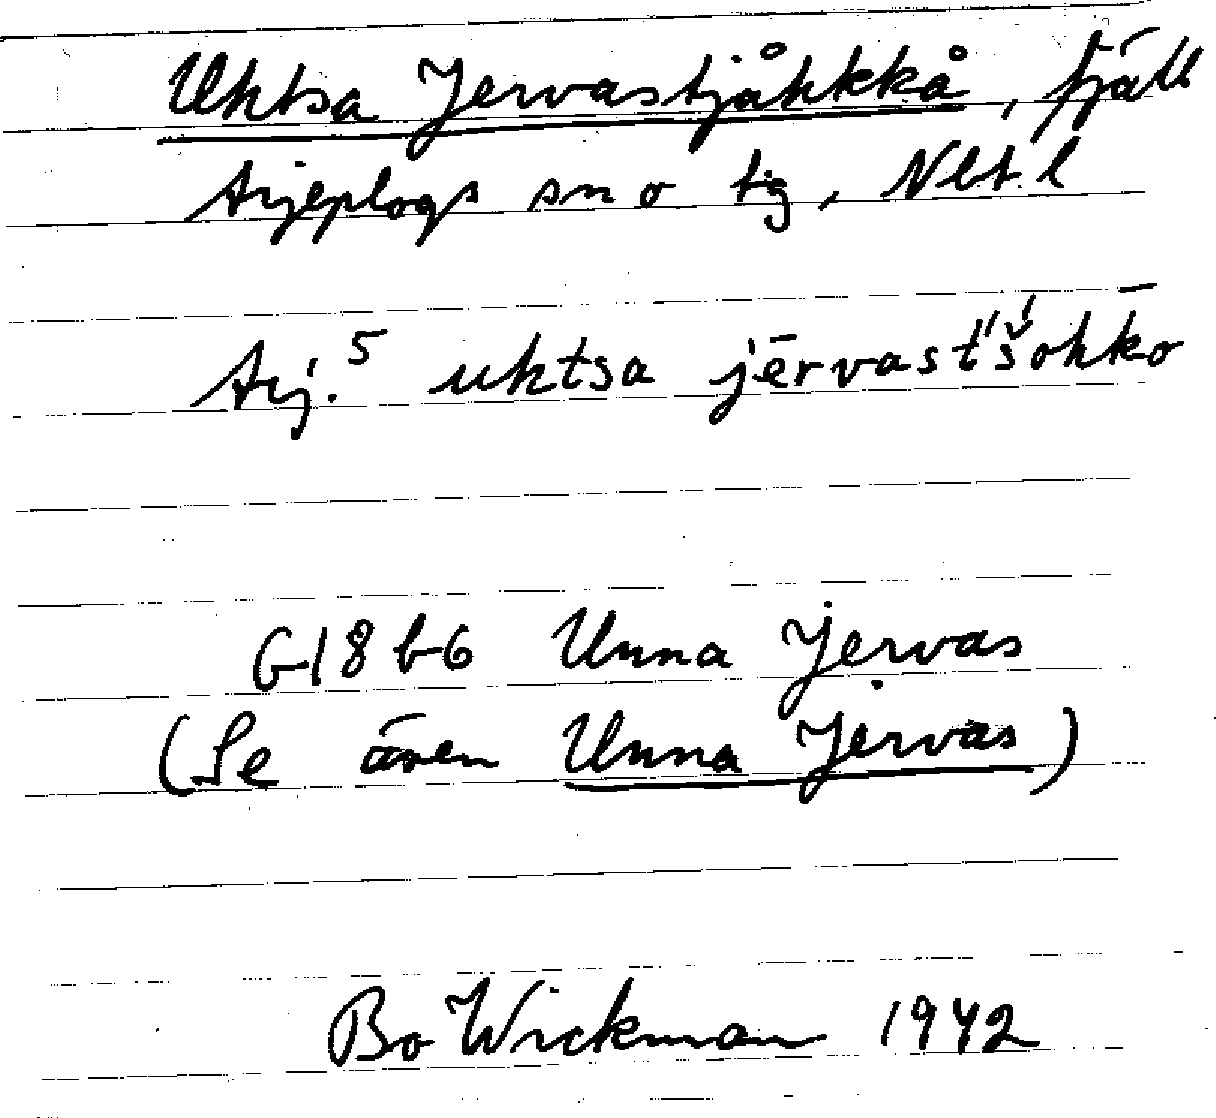 Uktsa Jervastjåkkå, fjäll
Arjeplogs sn o tg, Nbt. l
Arj. 5 uktsa jērvast'šohkō
G18 b6 Unna Jervas
(Se även Unna Jervas)
Bo Wickman 1942